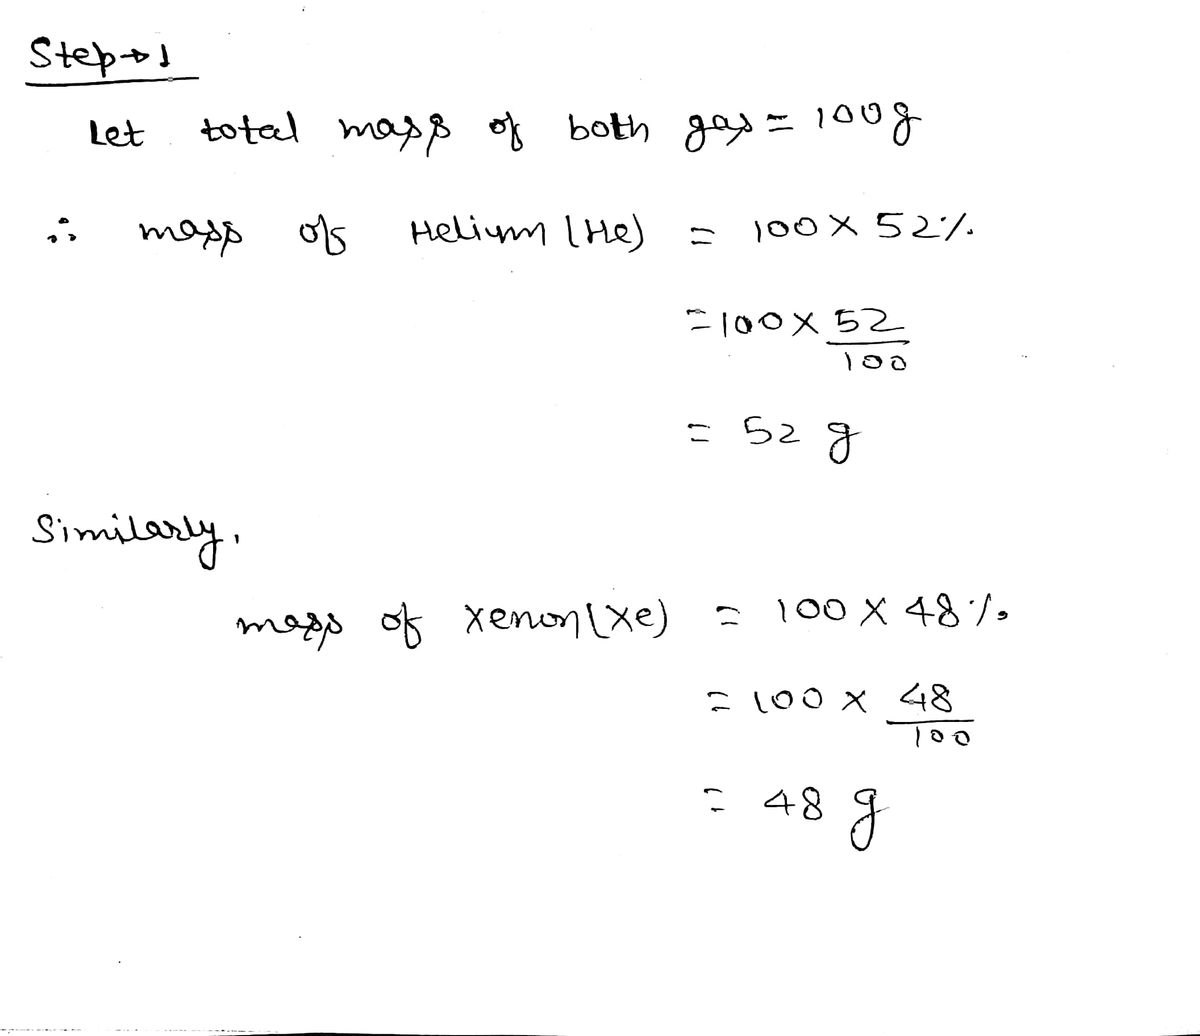 Step→1
Let total mass of both gas = 100g
∴ mass of Helium (He) = 100 × 52%
= 100 × 52/100
= 52 g
Similarly,
mass of Xenon (Xe) = 100 × 48%
= 100 × 48/100
= 48 g